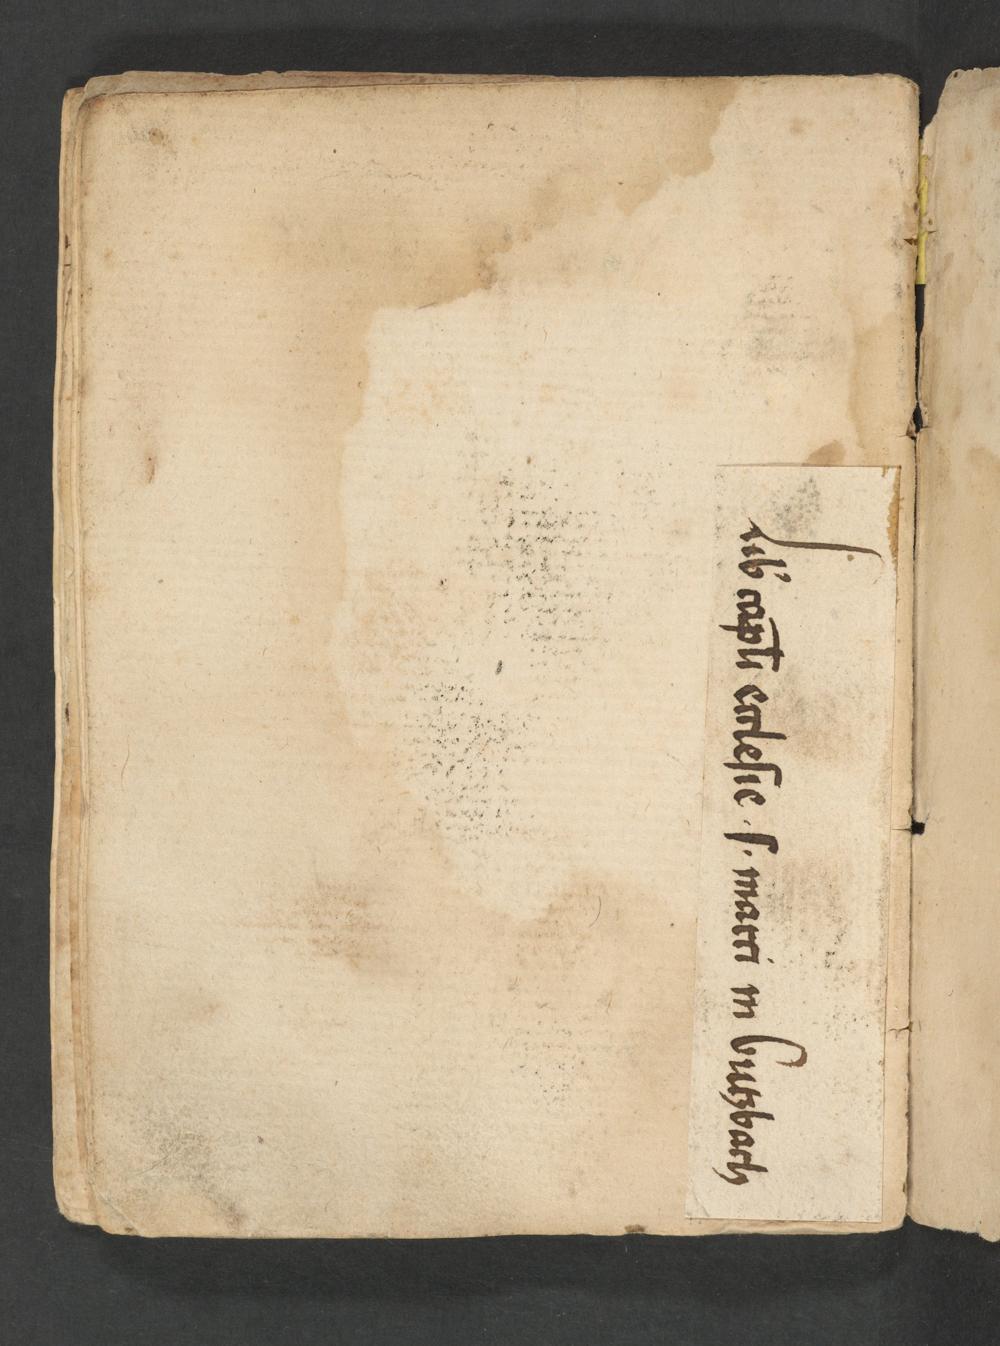 lib' capti ecclesie . s. marci in butzbach